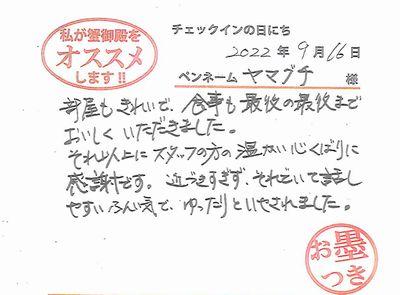 私が蟹御殿を
オススメ
します!!
チェックインの日にち
2022年9月16日
ペンネーム ヤマグチ 様
部屋もきれいで、食事も最後の最後まで
おいしくいただきました。
それ以上にスタッフの方の温かい心くばりに
感謝です。近づきすぎず、それでいて話し
やすいふん気で、ゆったりといやされました。
お墨
つき